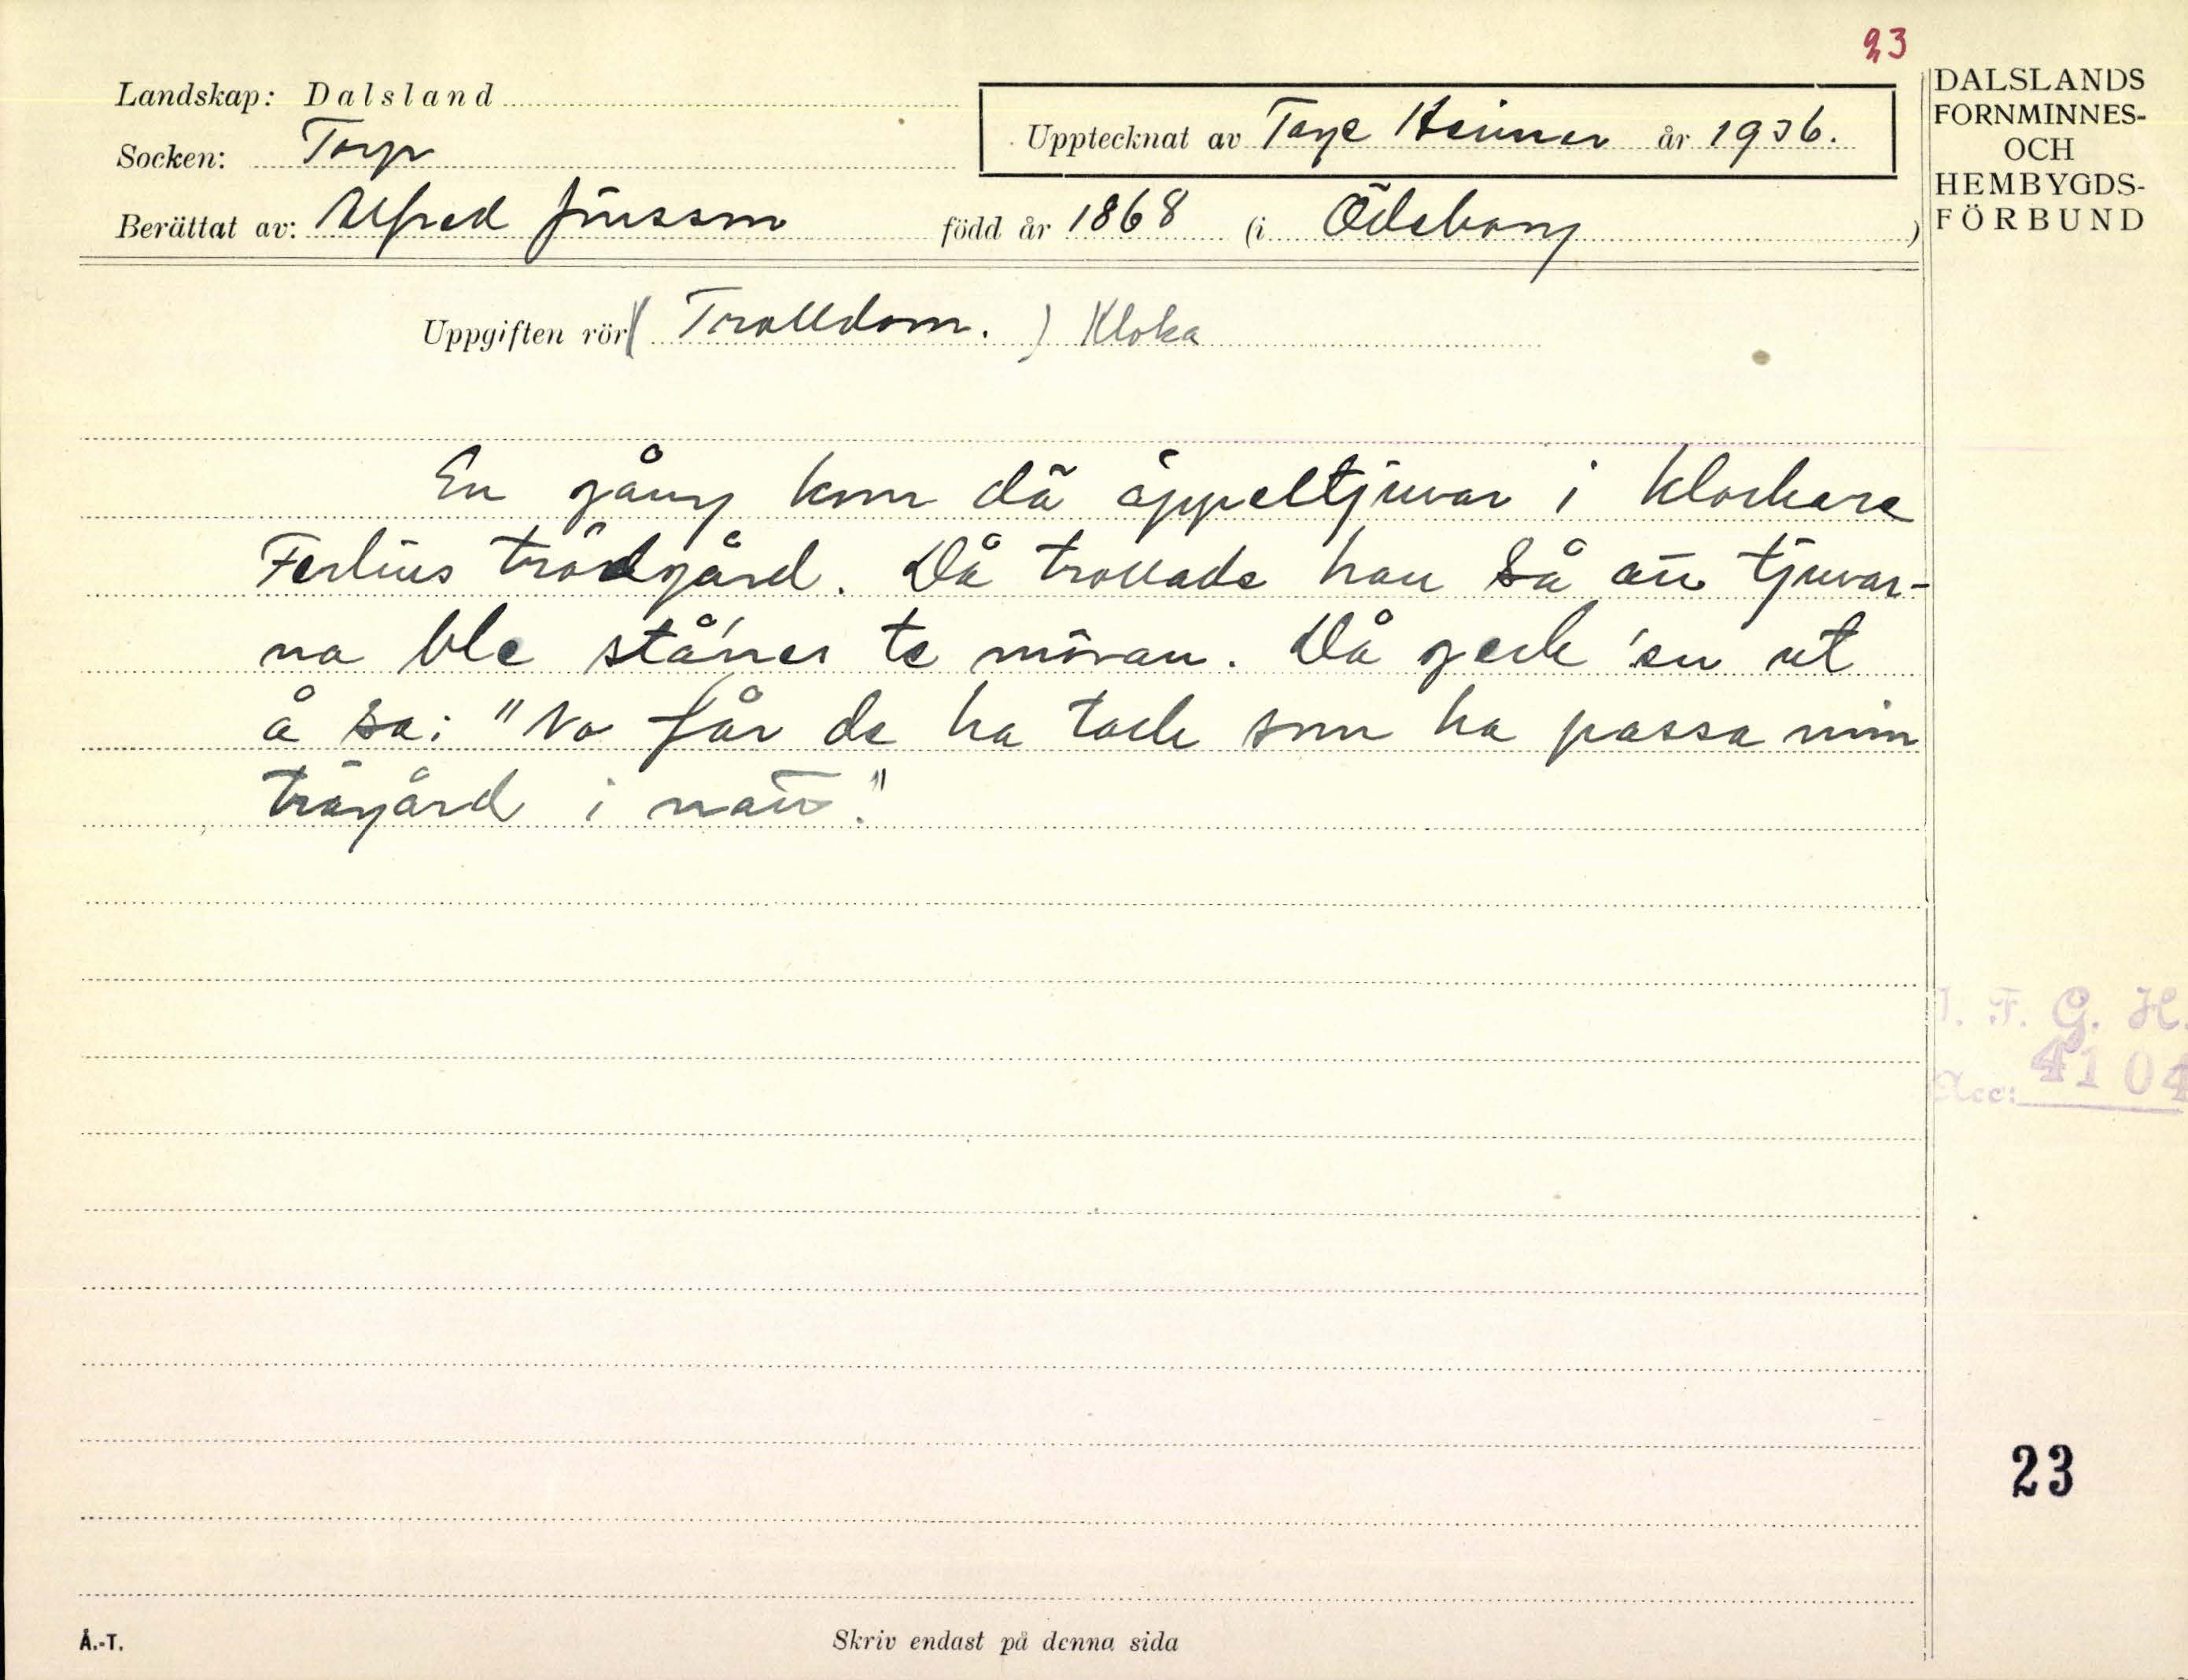 23
Landskap: Dalsland
Socken: Torp
Upptecknat av Tage Heimer år 1936.
Berättat av: Alfred Jonsson född år 1868 (i Ödeborg)
DALSLANDS
FORNMINNES-
OCH
HEMBYGDS-
FÖRBUND
Uppgiften rör (Trolldom.) Kloka
En gång kom dä äppeltjuvar i klockare
Ferlins trädgård. Då trollade han så att tjuvar-
na ble stånes te môran. Då geck 'en ut
å sa: "No får de ha tack som ha passa min
trägård i natt."
I. F. G. H.
Acc: 4104
23
Å.-T.
Skriv endast på denna sida